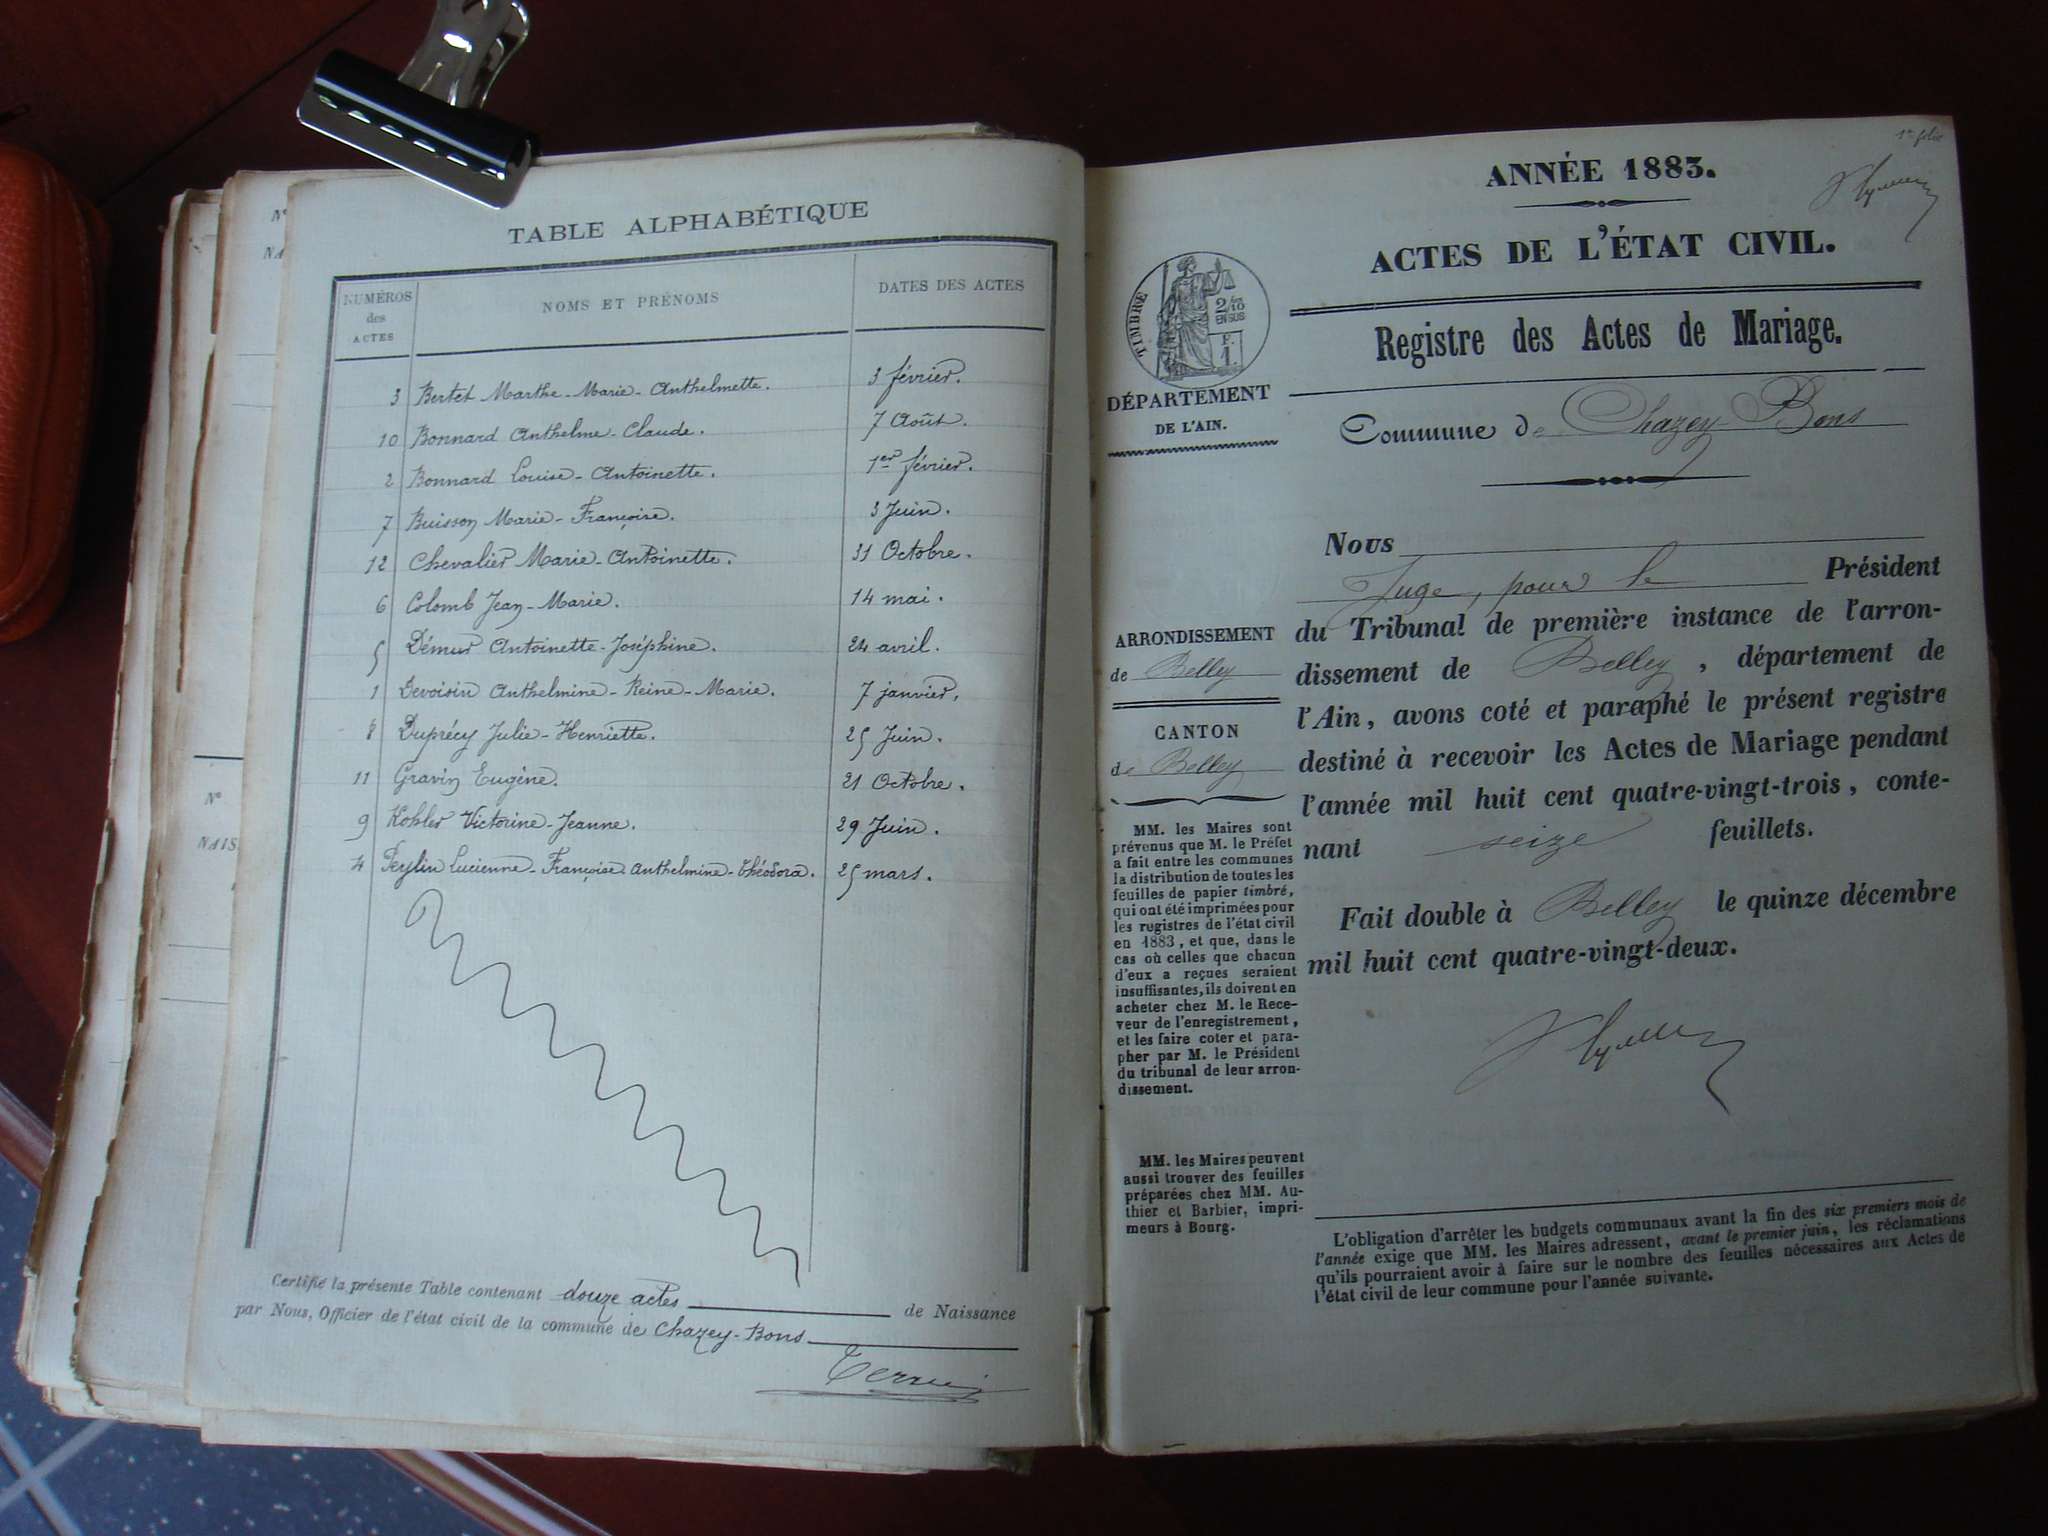 TABLE ALPHABÉTIQUE
NUMÉROS des ACTES NOMS ET PRÉNOMS DATES DES ACTES
3 Bertet Marthe-Marie-Anthelmette. 3 février.
10 Bonnard Anthelme-Claude. 7 Août.
2 Bonnard Louise-Antoinette. 1er février.
7 Buisson Marie-Françoise. 3 Juin.
12 Chevalier Marie-Antoinette. 31 Octobre.
6 Colomb Jean-Marie. 14 mai.
5 Démur Antoinette-Joséphine. 24 avril.
1 Devoisin Anthelmine-Reine-Marie. 7 janvier.
8 Duprécy Julie-Henriette. 25 Juin.
11 Gravin Eugène. 21 Octobre.
9 Kohler Victorine-Jeanne. 29 Juin.
4 Peylin Lucienne-Françoise-Anthelmine-Théodora. 25 mars.
Certifié la présente Table contenant douze actes de Naissance
par Nous, Officier de l'état civil de la commune de Chazey-Bons
N°
N°
NAIS
1er folio
ANNÉE 1883.
ACTES DE L'ÉTAT CIVIL.
TIMBRE
2/10
EN SUS
F.
1.
Registre des Actes de Mariage.
DÉPARTEMENT
DE L'AIN.
Commune de Chazey-Bons
ARRONDISSEMENT
de Belley
CANTON
de Belley
MM. les Maires sont
prévenus que M. le Préfet
a fait entre les communes
la distribution de toutes les
feuilles de papier timbré,
qui ont été imprimées pour
les registres de l'état civil
en 1883, et que, dans le
cas où celles que chacun
d'eux a reçues seraient
insuffisantes, ils doivent en
acheter chez M. le Rece-
veur de l'enregistrement,
et les faire coter et para-
pher par M. le Président
du tribunal de leur arron-
dissement.
MM. les Maires peuvent
aussi trouver des feuilles
préparées chez MM. Au-
thier et Barbier, impri-
meurs à Bourg.
Nous
Juge, pour le Président
du Tribunal de première instance de l'arron-
dissement de Belley, département de
l'Ain, avons coté et paraphé le présent registre
destiné à recevoir les Actes de Mariage pendant
l'année mil huit cent quatre-vingt-trois, conte-
nant seize feuillets.
Fait double à Belley le quinze décembre
mil huit cent quatre-vingt-deux.
L'obligation d'arrêter les budgets communaux avant la fin des six premiers mois de
l'année exige que MM. les Maires adressent, avant le premier juin, les réclamations
qu'ils pourraient avoir à faire sur le nombre des feuilles nécessaires aux Actes de
l'état civil de leur commune pour l'année suivante.